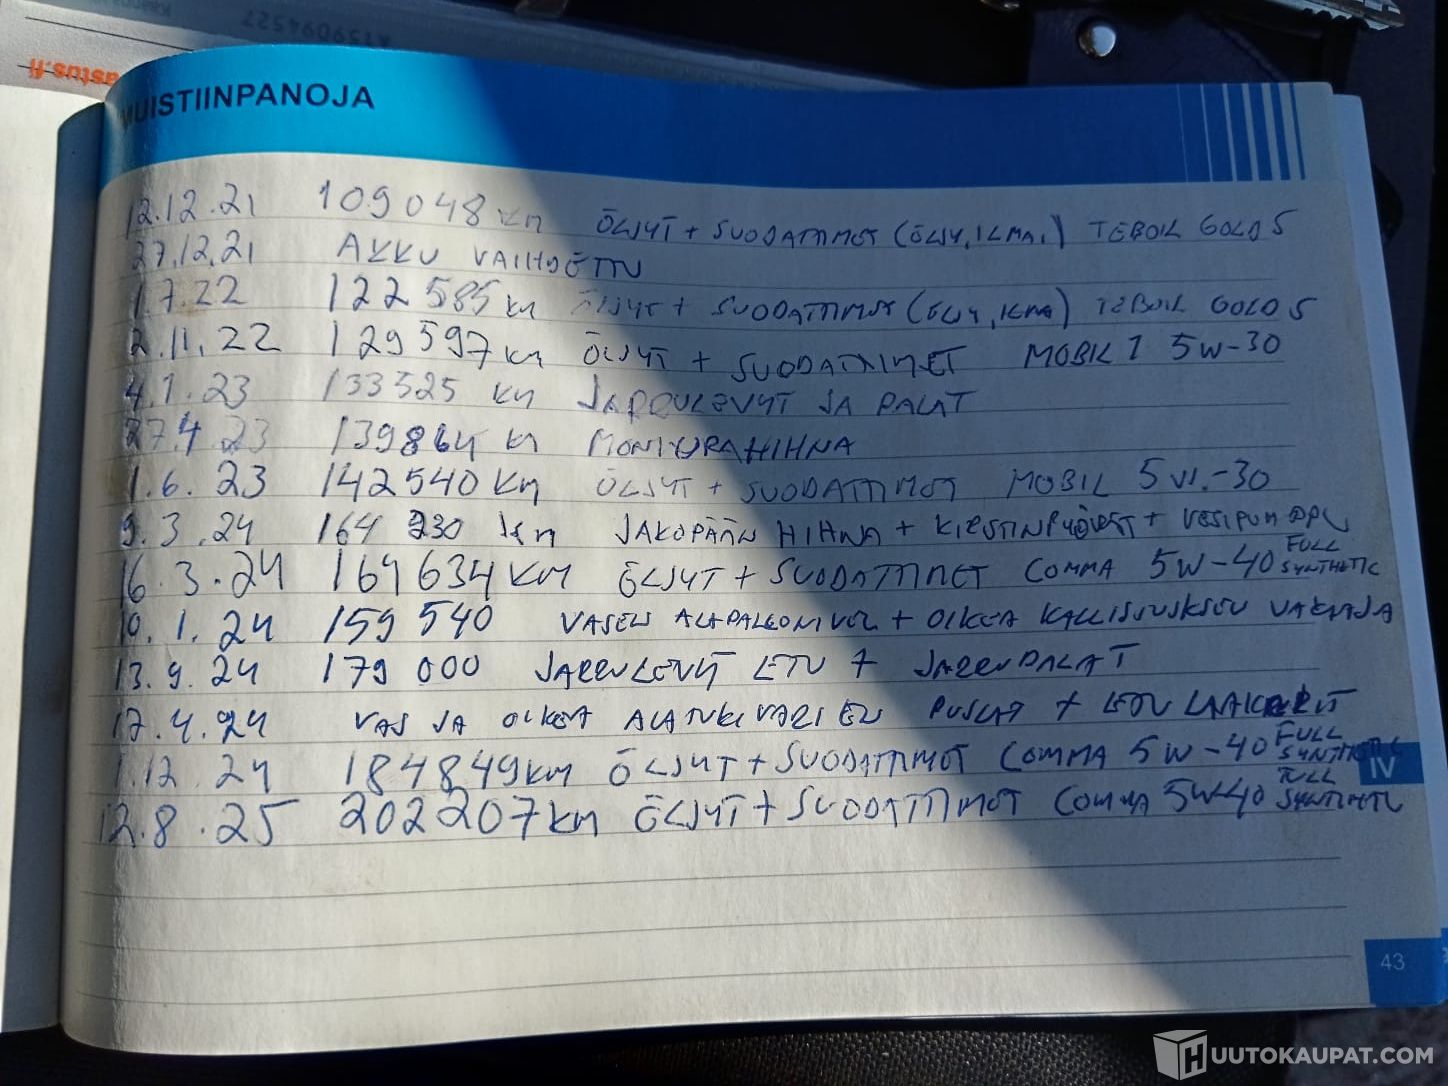 MUISTIINPANOJA
12.12.21 109048 KM ÖLJYT + SUODATTIMET (ÖLJY, ILMA,) TEBOIL GOLD 5
27.12.21 AKKU VAIHDETTU
1.7.22 122 585 KM ÖLJYT + SUODATTIMET (ÖLJY, ILMA) TEBOIL GOLD 5
2.11.22 129 597 KM ÖLJYT + SUODATTIMET MOBIL 1 5W-30
4.1.23 133325 KM JARRULEVYT JA PALAT
27.4 23 139864 KM MONIURAHIHNA
1.6.23 142540 KM ÖLJYT + SUODATTIMET MOBIL 5W-30
9.3.24 164 230 KM JAKOPÄÄN HIHNA + KIRISTINPYÖRÄT + VESIPUMPPU
16.3.24 164634 KM ÖLJYT + SUODATTIMET COMMA 5W-40 FULL SYNTHETIC
10.1.24 159 540 VASEN ALAPALLONIVEL + OIKEA KALLISTUKSEN VAKAAJA
13.9.24 179 000 JARRULEVYT ETU + JARRUPALAT
17.4.24 VAS JA OIKEA ALATUKIVARSIEN PUSLAT + ETU LAAKERIT
1.12.24 184849 KM ÖLJYT + SUODATTIMET COMMA 5W-40 FULL SYNTHETIC
IV
12.8.25 202207 KM ÖLJYT + SUODATTIMET COMMA 5W40 FULL SYNTHETIC
43
HUUTOKAUPAT.COM